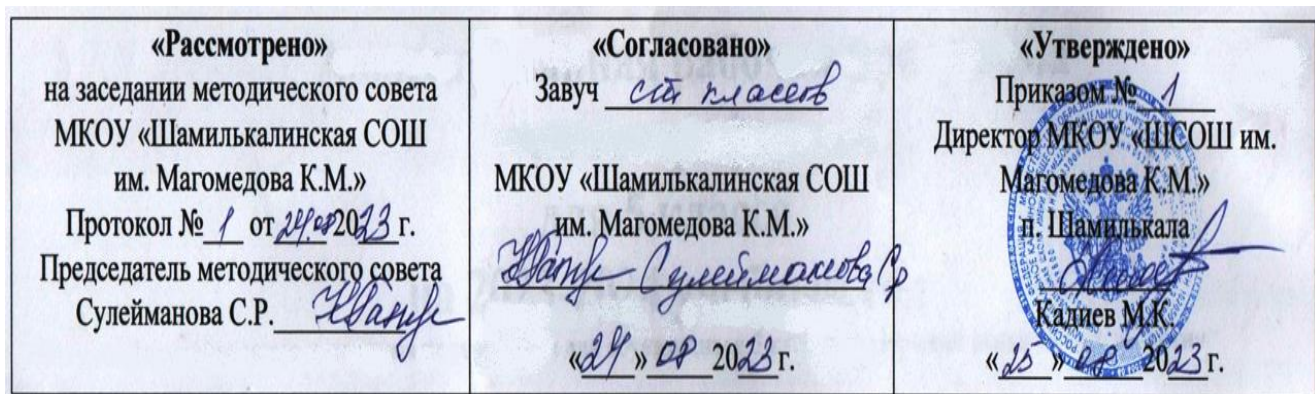 «Рассмотрено»
на заседании методического совета
МКОУ «Шамилькалинская СОШ
им. Магомедова К.М.»
Протокол № 1 от 24.08 2023 г.
Председатель методического совета
Сулейманова С.Р.
«Согласовано»
Завуч ст классов
МКОУ «Шамилькалинская СОШ
им. Магомедова К.М.»
Сулейманова Ср
«24» 08 2023 г.
«Утверждено»
Приказом № 1
Директор МКОУ «ШСОШ им.
Магомедова К.М.»
п. Шамилькала
Кадиев М.К.
«25» 08 2023 г.